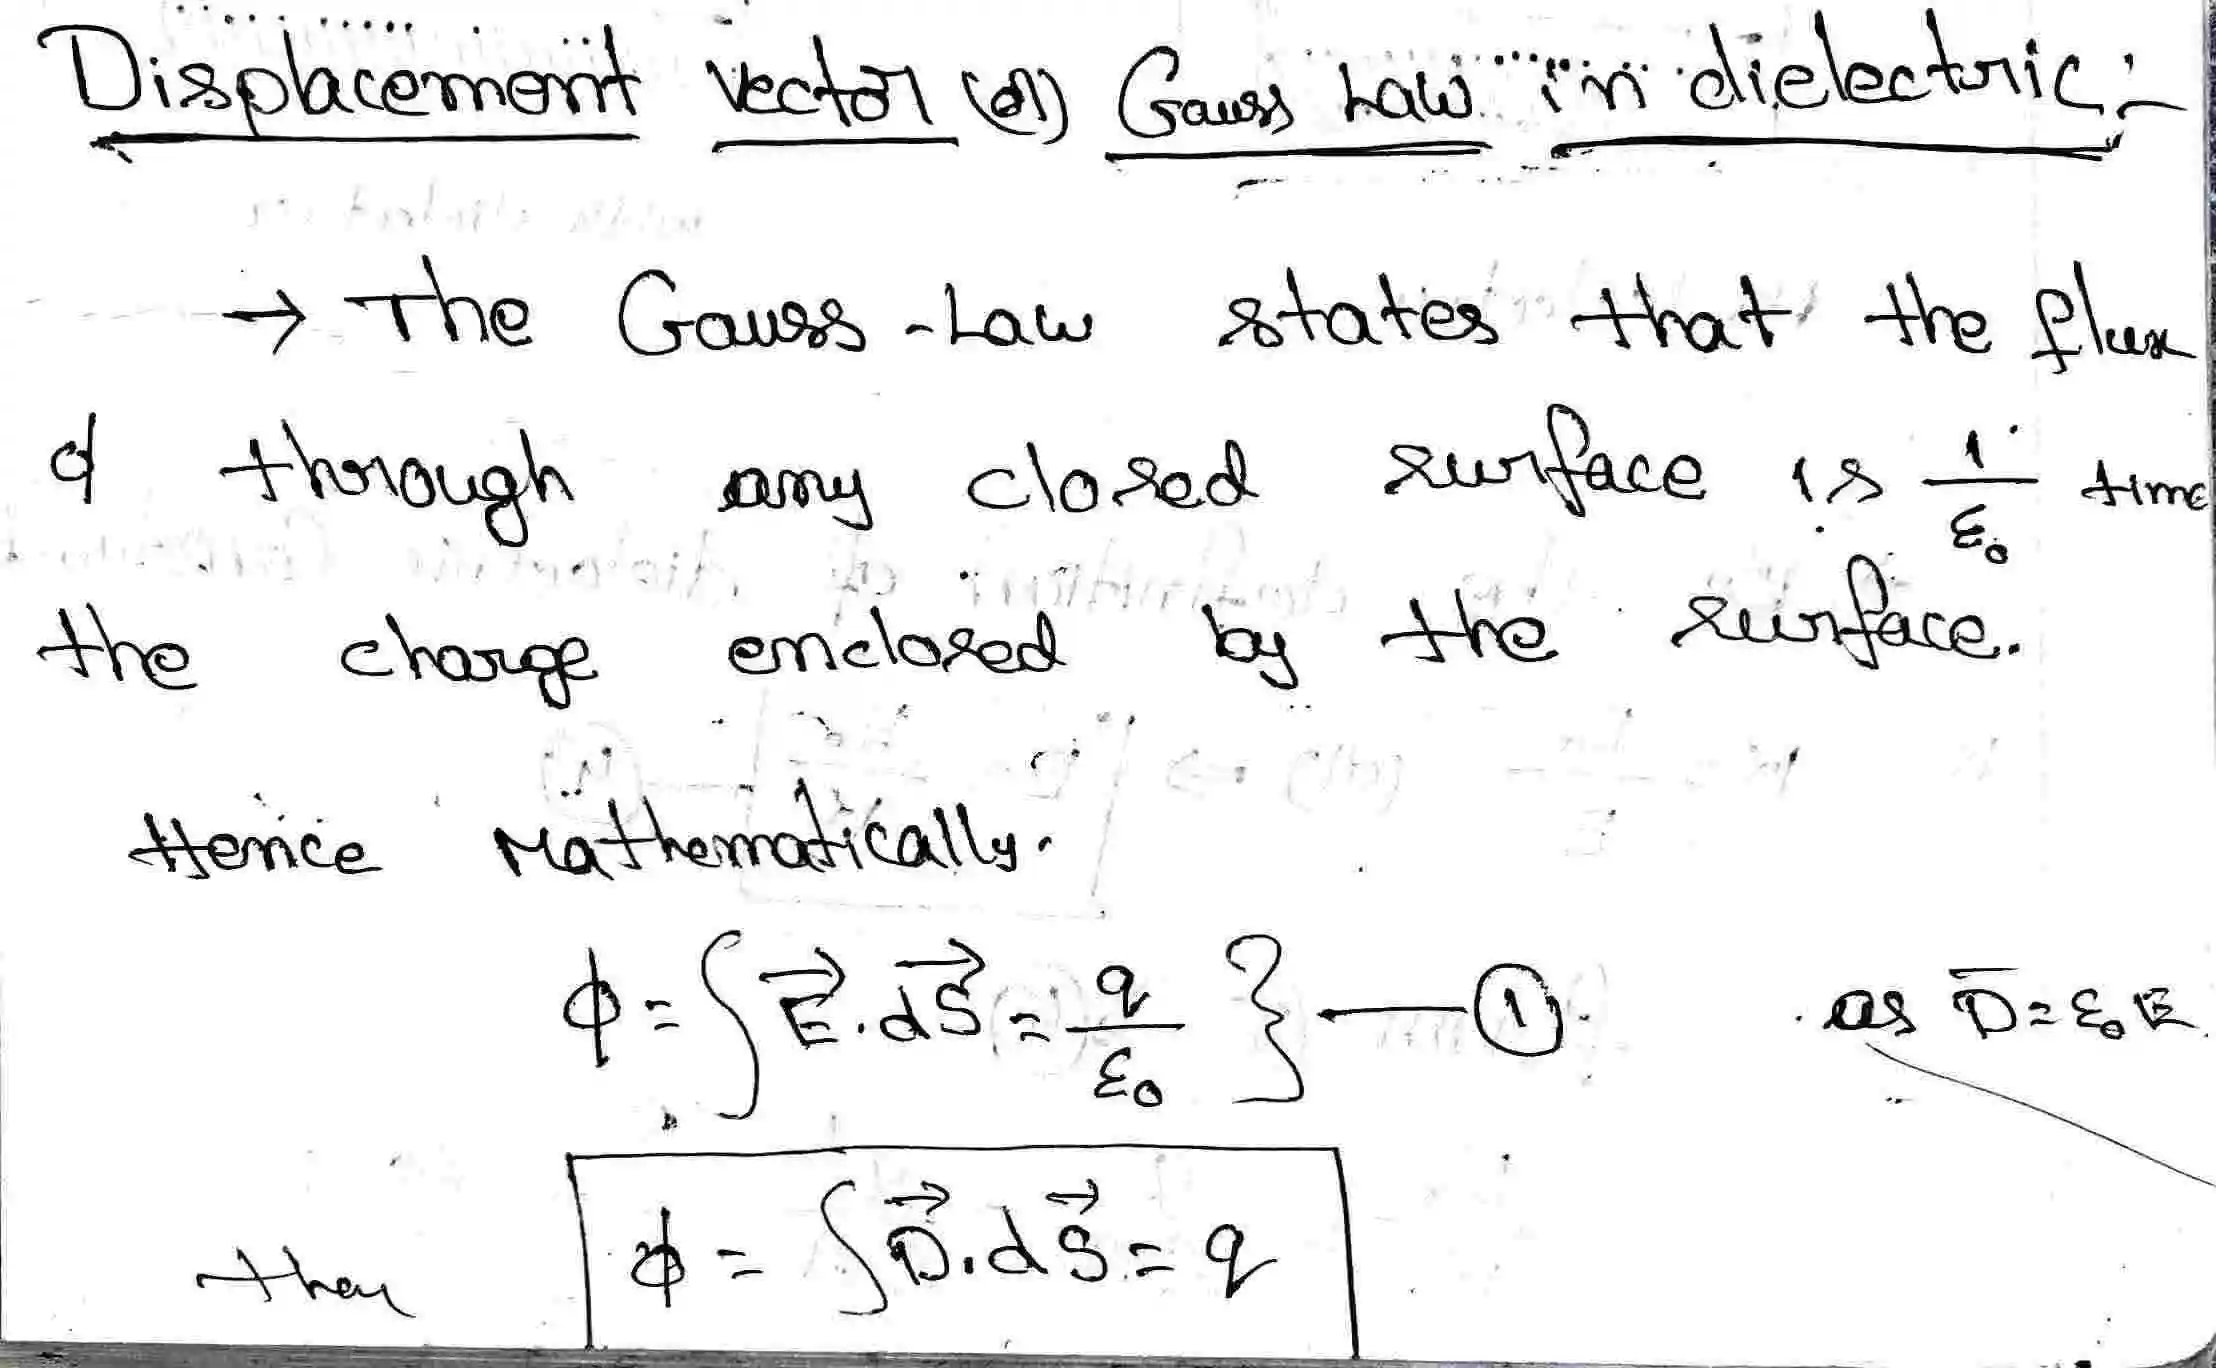 Displacement vector (or) Gauss Law in dielectric:-
→ The Gauss-Law states that the flux
ϕ through any closed surface is 1/ε₀ time
the charge enclosed by the surface.
Hence Mathematically.
ϕ = ∫ E⃗.dS⃗ = q/ε₀ } — ① as D̅ = ε₀E
then ϕ = ∫ D⃗.dS⃗ = q